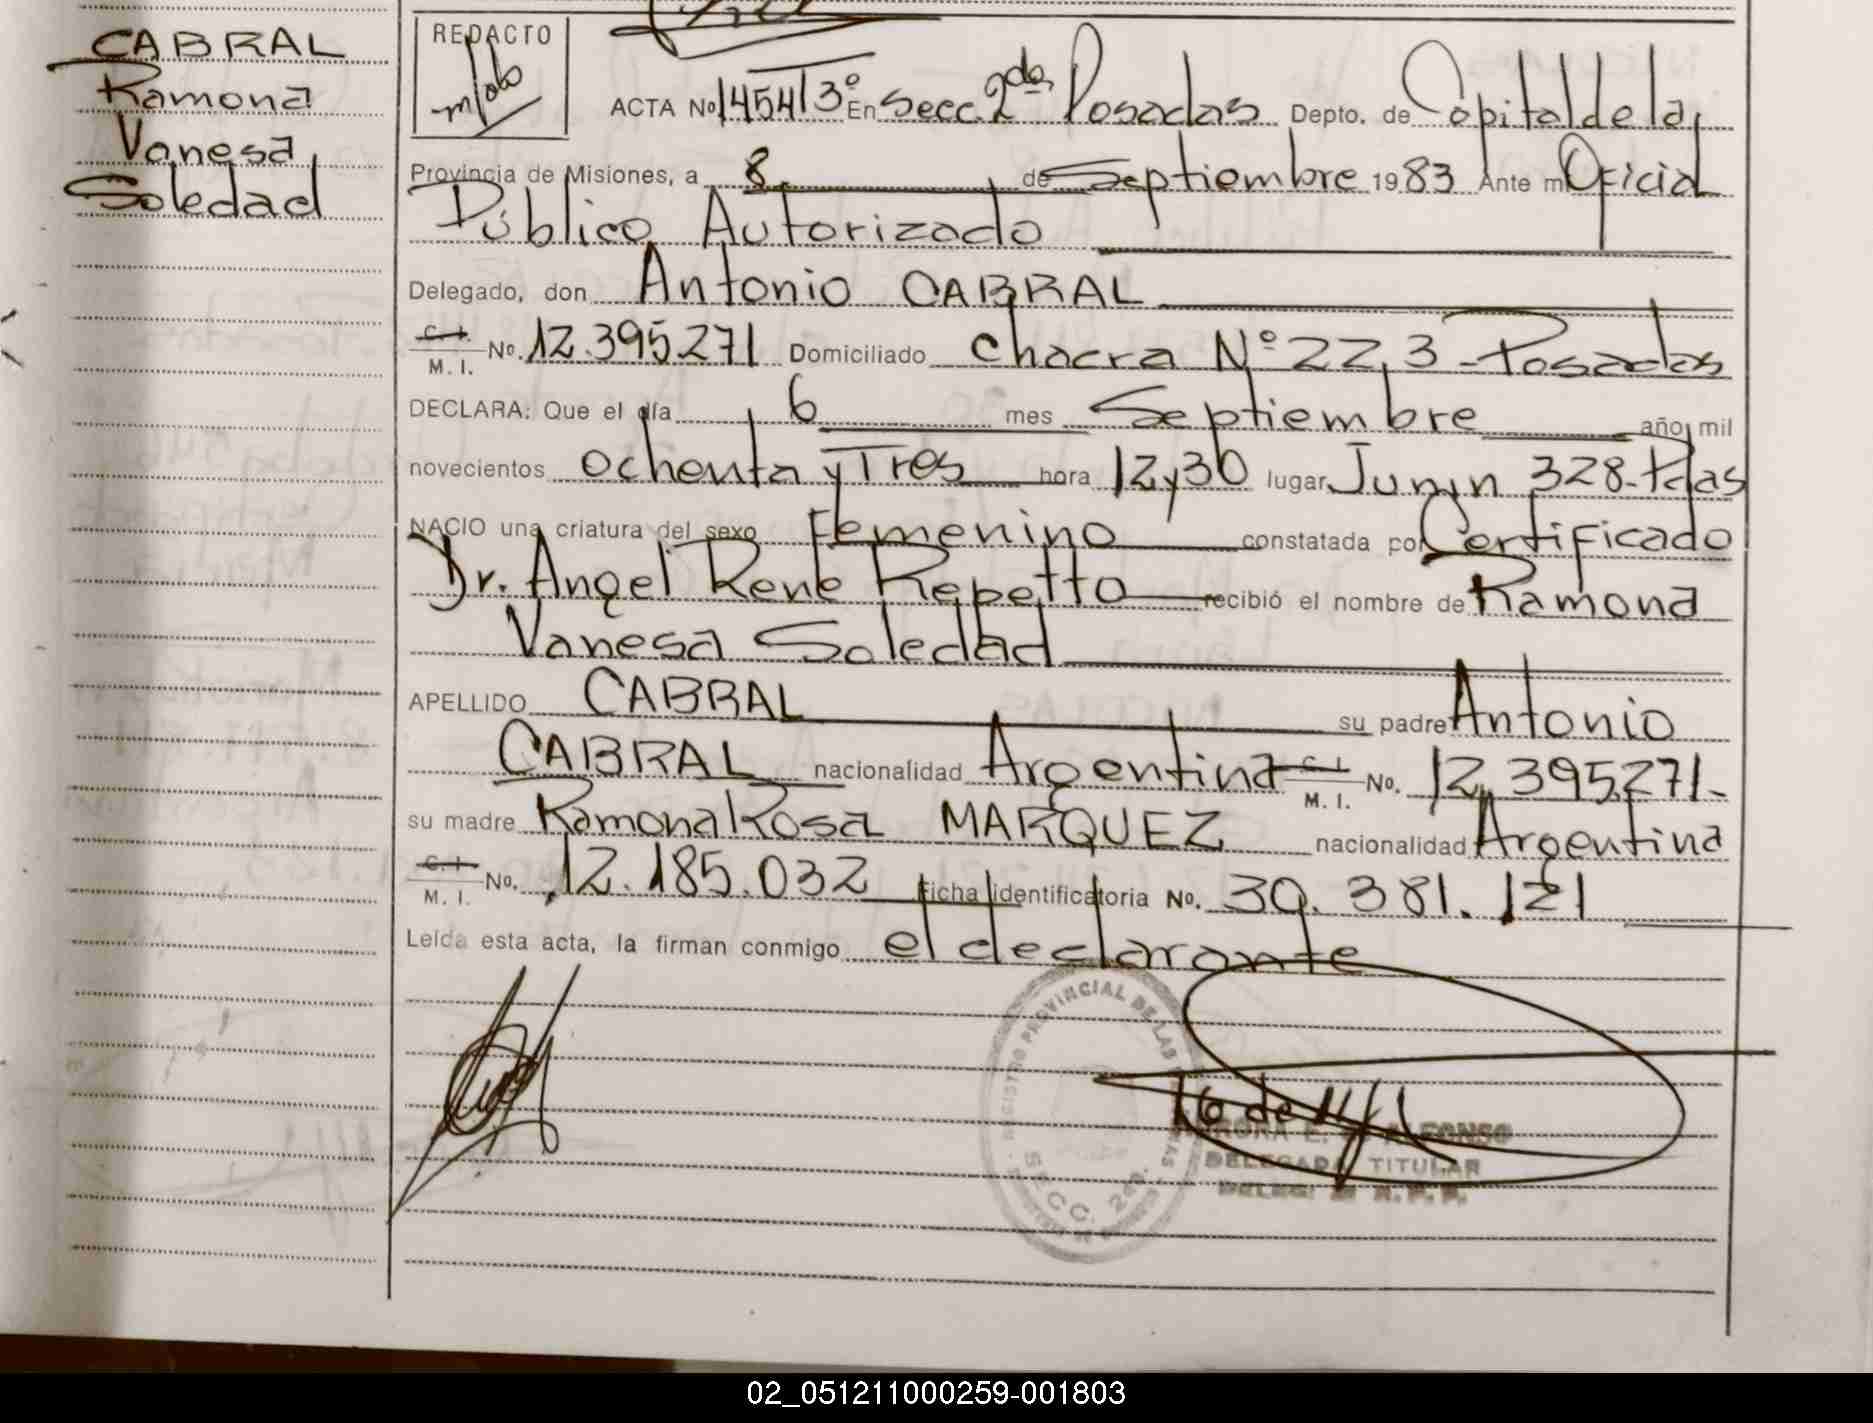 CABRAL
Ramona
Vanesa
Soledad
REDACTO
ACTA No 1454 T 3º En Secc. 2da Posadas Depto. de Capital de la
Provincia de Misiones, a 8 de Septiembre 1983 Ante mí Oficial
Público Autorizado
Delegado, don Antonio CABRAL
C. I. M. I. No. 12.395.271 Domiciliado Chacra Nº 22,3 - Posadas
DECLARA: Que el día 6 mes Septiembre año mil
novecientos ochenta y Tres hora 12 y 30 lugar Junin 328 - Pdas
NACIO una criatura del sexo Femenino constatada por Certificado
Dr. Angel René Repetto recibió el nombre de Ramona
Vanesa Soledad
APELLIDO CABRAL su padre Antonio
CABRAL nacionalidad Argentina C. I. M. I. No. 12.395.271-
su madre Ramona Rosa MARQUEZ nacionalidad Argentina
C. I. M. I. No. 12.185.032 Ficha identificatoria No. 30.381.121
Leída esta acta, la firman conmigo el declarante
REGISTRO PROVINCIAL DE LAS
SECC. 2da.
DELEGADA TITULAR
02_051211000259-001803